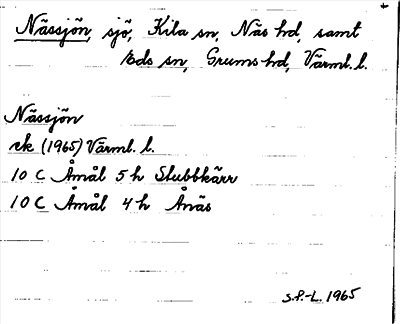 Nässjön, sjö, Kila sn, Näs hd, samt
Eds sn, Grums hd, Värml. l.
Nässjön
ek (1965) Värml. l.
10 C Åmål 5 h Stubbkärr
10 C Åmål 4 h Ånäs
S.P.-L. 1965